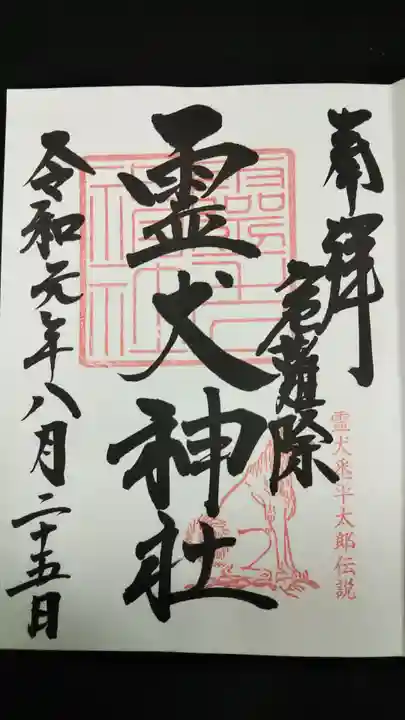 奉拝
危難除
霊犬悉平太郎伝説
霊犬神社
令和元年八月二十五日